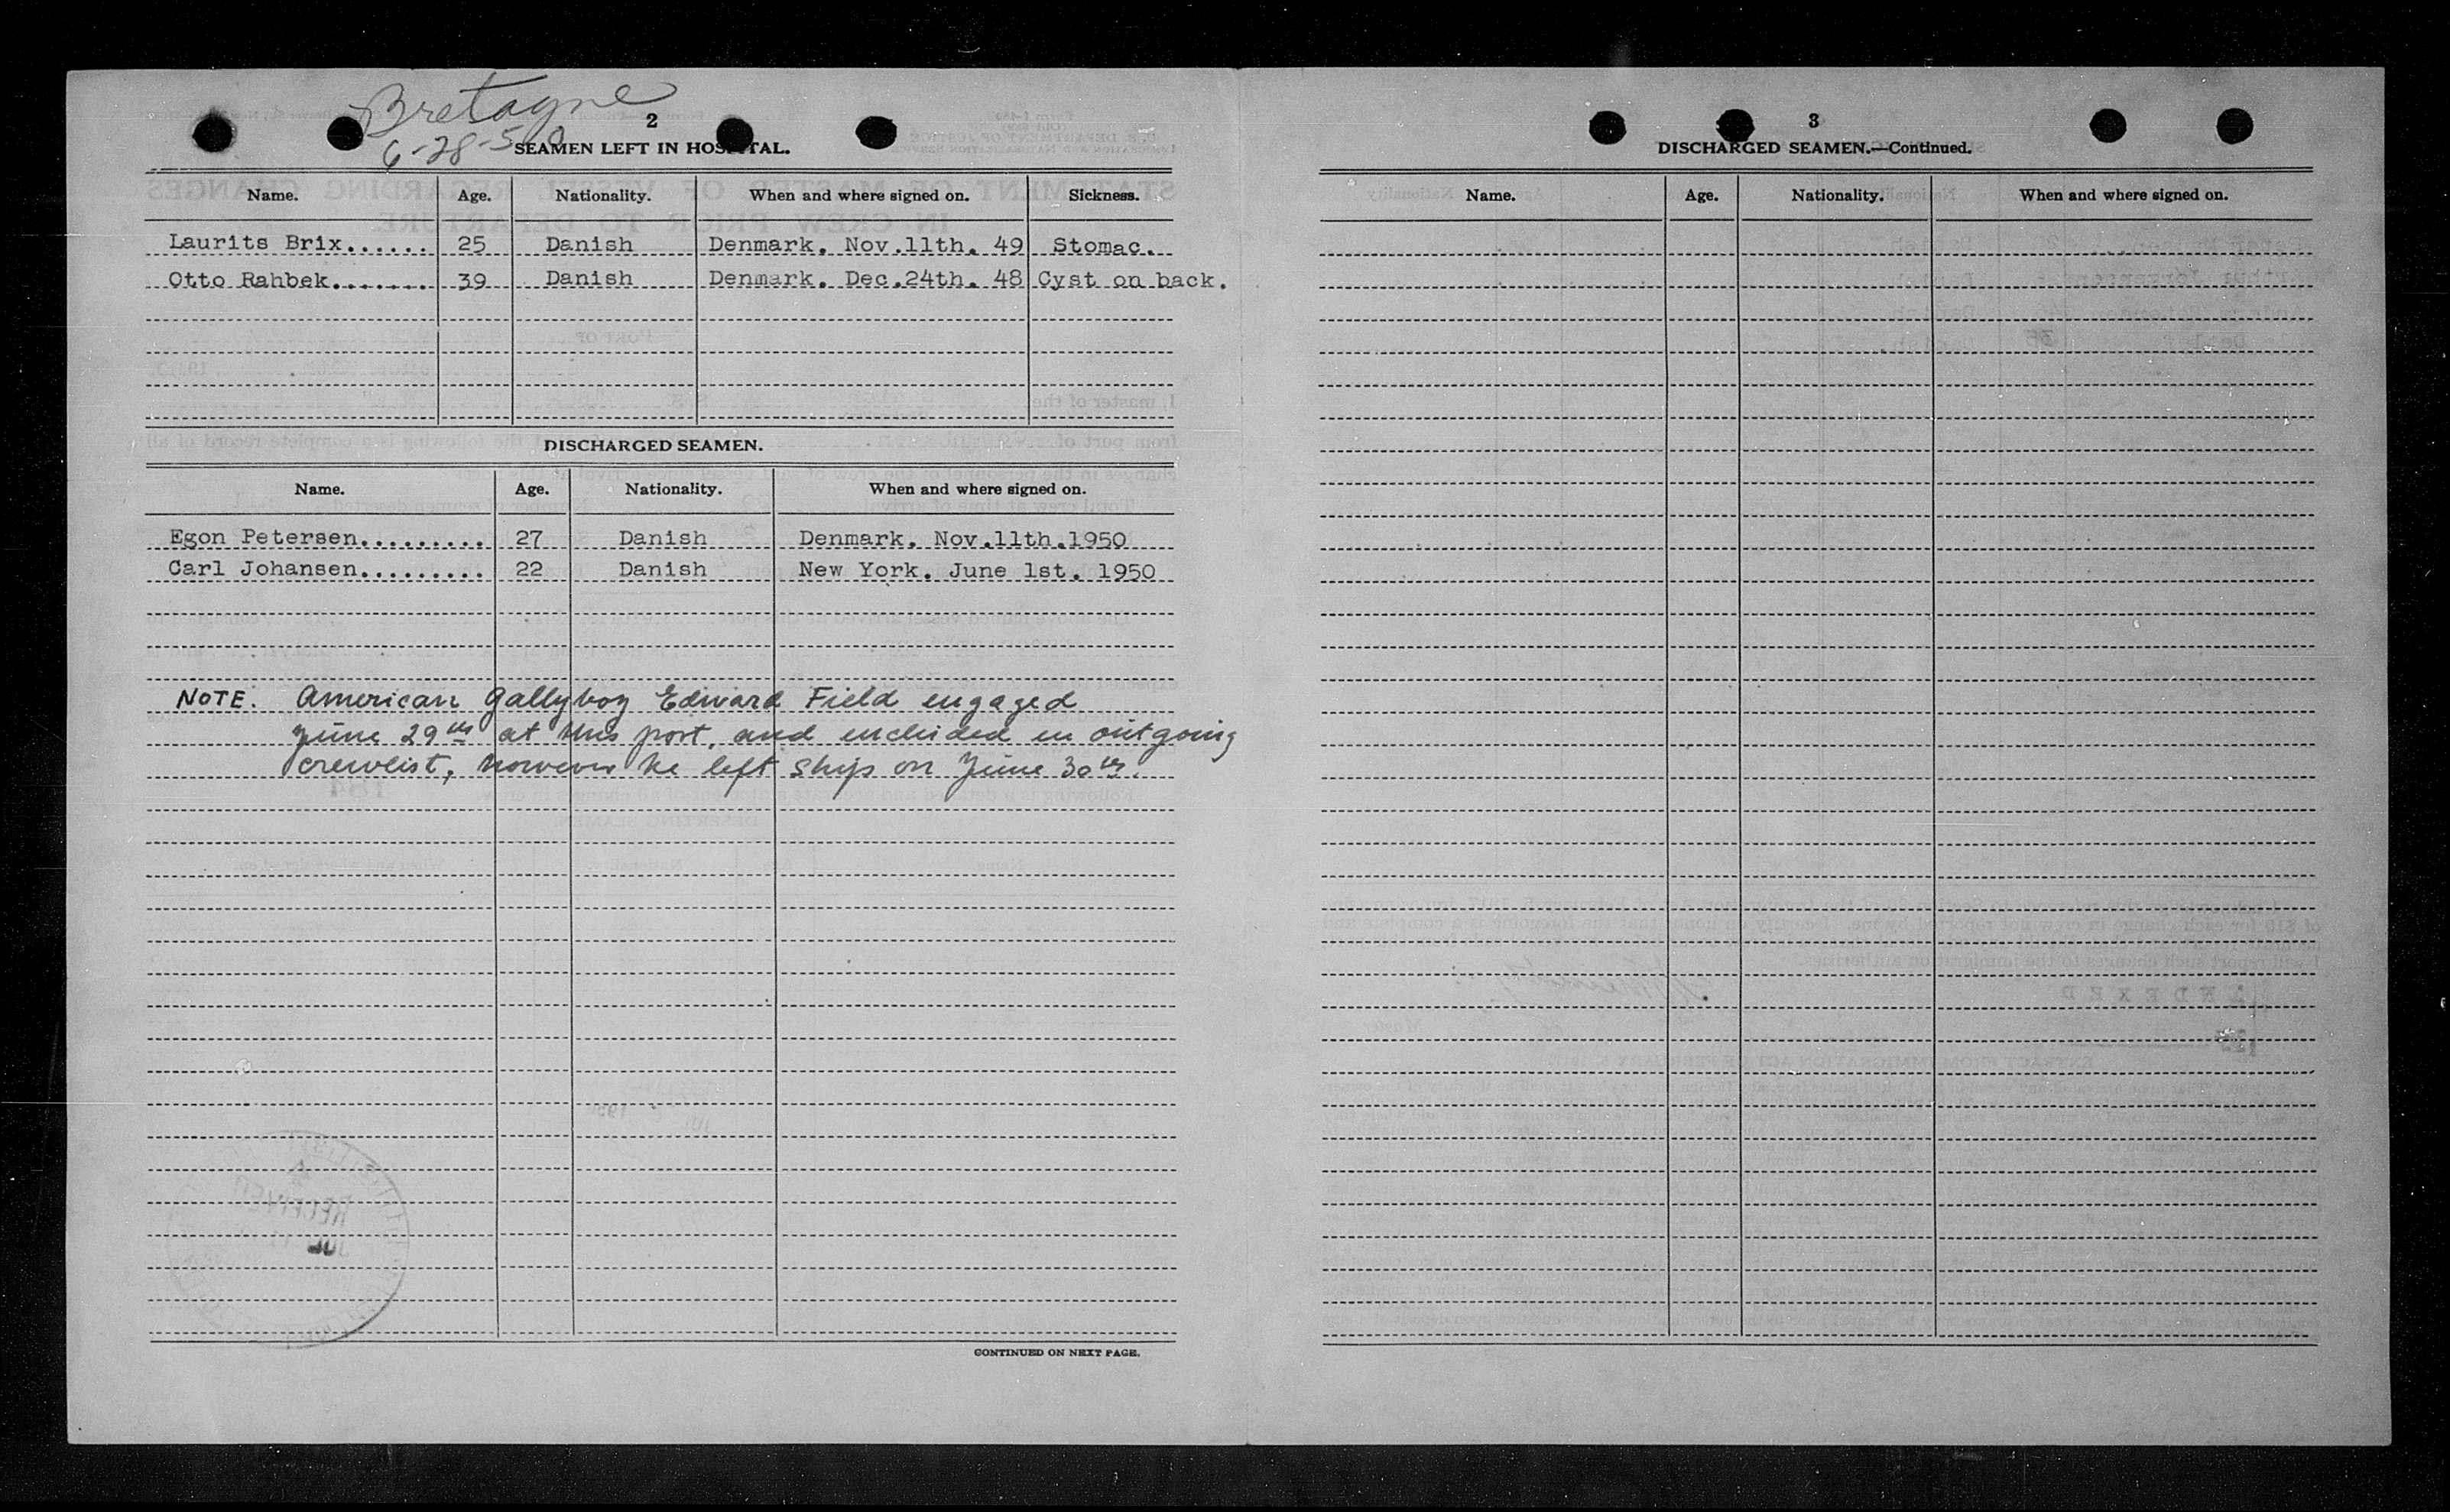 Bretagne
6-28-50
2
SEAMEN LEFT IN HOSPITAL.
Name. Age. Nationality. When and where signed on. Sickness.
Laurits Brix...... 25 Danish Denmark. Nov.11th. 49 Stomac.
Otto Rahbek....... 39 Danish Denmark. Dec.24th. 48 Cyst on back.
DISCHARGED SEAMEN.
Name. Age. Nationality. When and where signed on.
Egon Petersen......... 27 Danish Denmark. Nov.11th.1950
Carl Johansen......... 22 Danish New York. June 1st. 1950
NOTE. American gallyboy Edward Field engaged
June 29th at this port, and included in outgoing
crewlist, however he left ship on June 30th.
CONTINUED ON NEXT PAGE.
3
DISCHARGED SEAMEN.—Continued.
Name. Age. Nationality. When and where signed on.